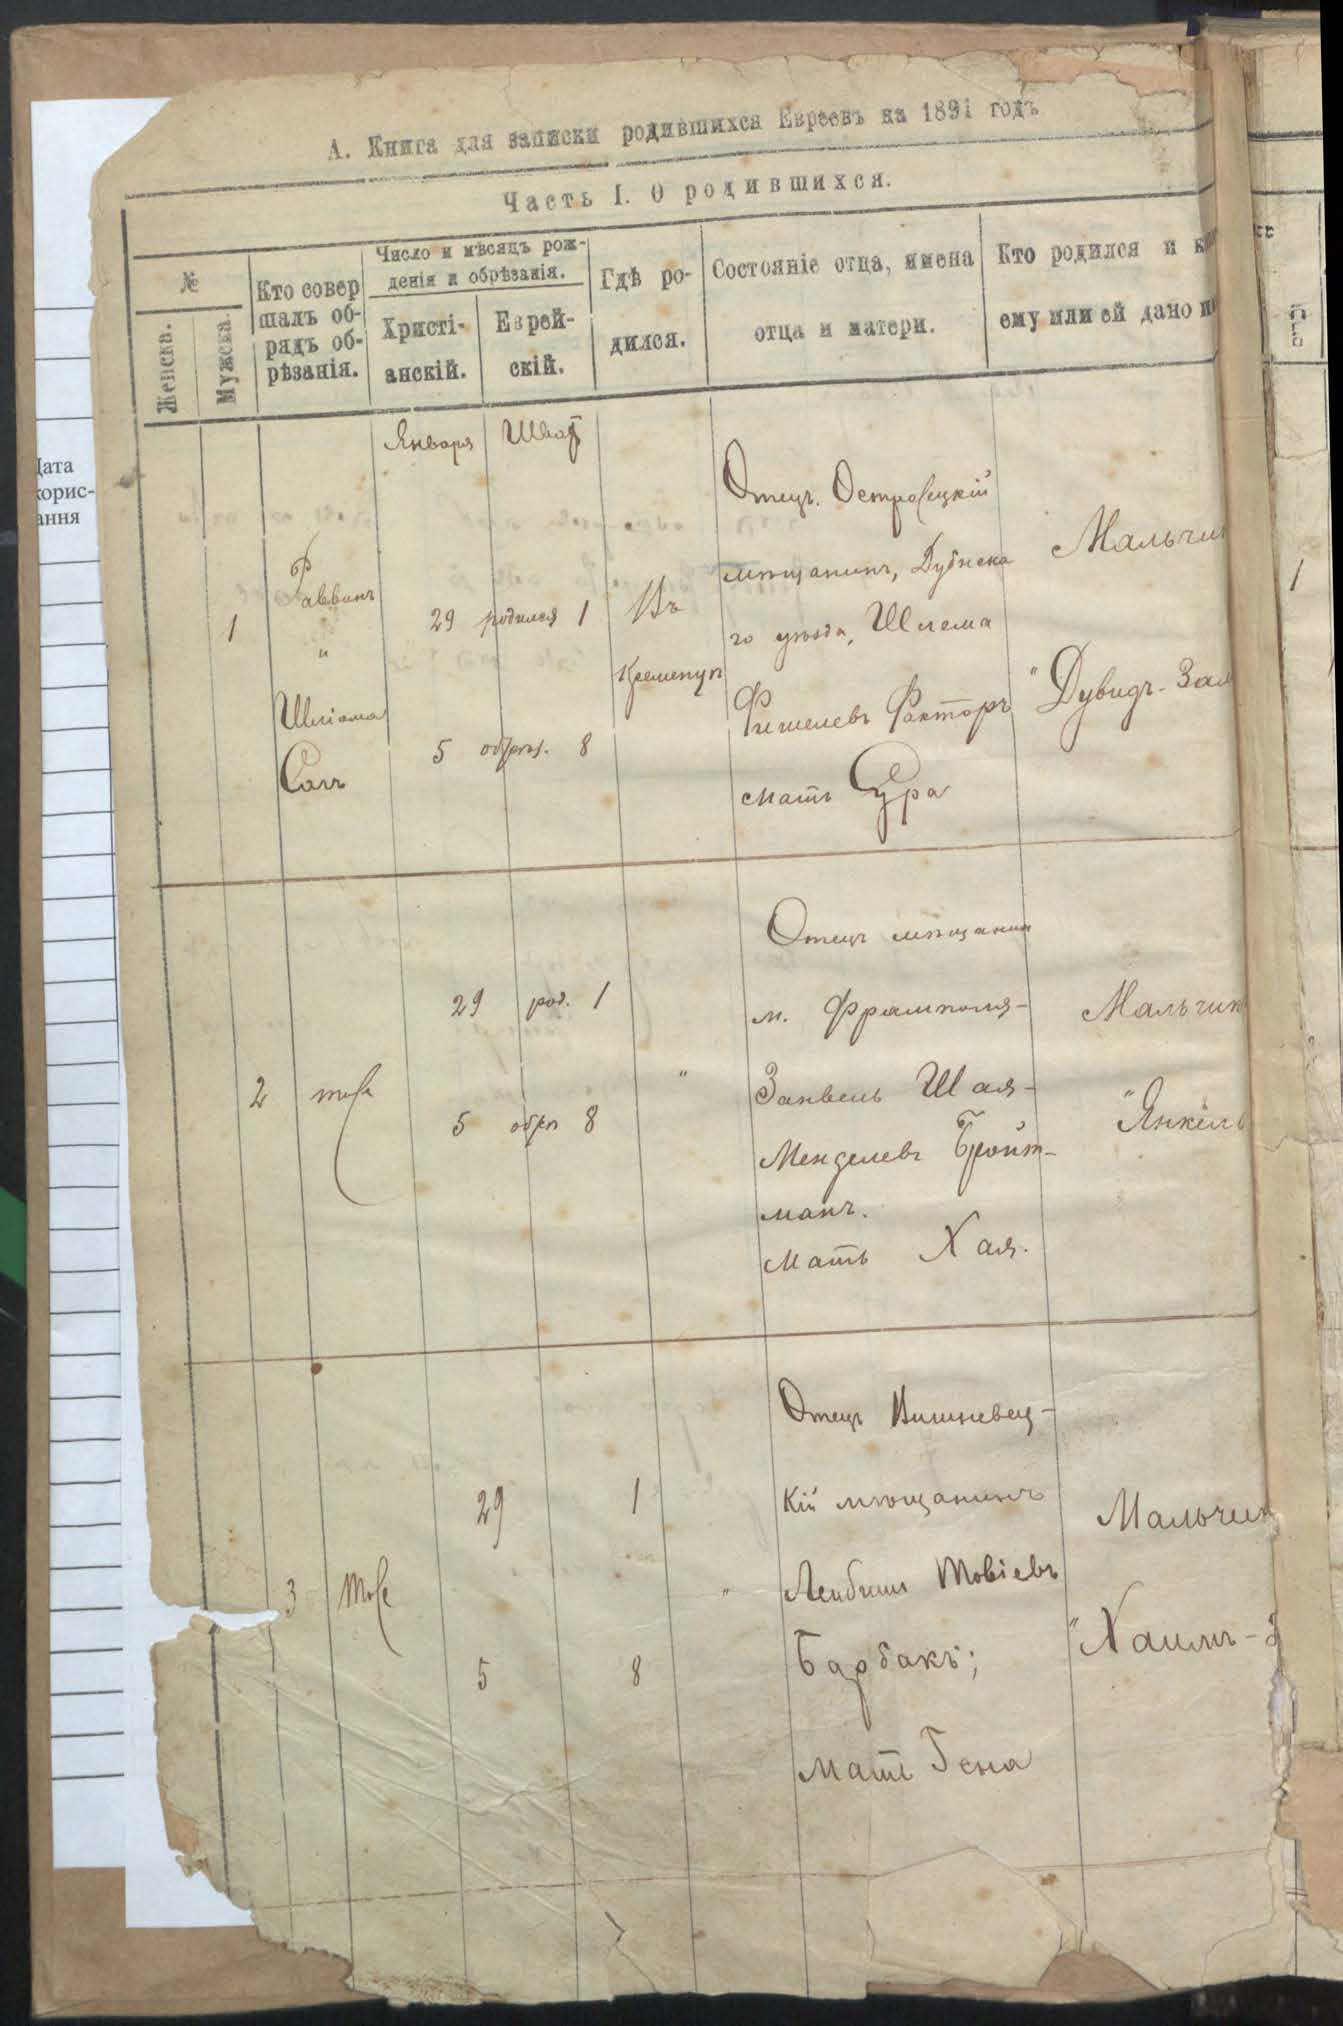 А. Книга для записки родившихся Евреевъ на 1891 годъ
Часть I. О родившихся.
№
Женска.
Мужска.
Кто совер
шалъ об-
рядъ об-
рѣзанія.
Число и мѣсяцъ рож-
денія и обрѣзанія.
Христі-
анскій.
Еврей-
скій.
Гдѣ ро-
дился.
Состояніе отца, имена
отца и матери.
Кто родился и
ему или ей дано
Января
Шват
1
Раввинъ
и
Шліома
29 родился 1
5 обрѣз. 8
Въ
Кременцѣ
Отецъ. Островецкій
мѣщанинъ, Дубнска
го уѣзда, Шлема
Фишелевъ Факторъ
мать Сура
Мальчи
"Дувидъ-Зал
2
29 род. 1
5 обрѣз 8
"
Отецъ мѣщанин
м. Фрамполя-
Занвель Шая-
Менделевъ Бройт-
манъ.
мать Хая.
Мальчик
"Янкель
3
29 1
5 8
"
Отецъ Вишневец-
кій мѣщанинъ
Лейбиш Товіевъ
Барбакъ;
мать Гена
Мальчик
"Хаимъ-
Дата
корис-
ання
1